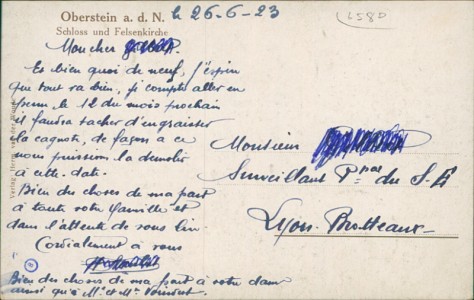 Oberstein a. d. N. le 26-6-23
Schloss und Felsenkirche
6580
Mon cher
Et bien quoi de neuf, j'espère
que tout va bien, je compte aller en
perm le 12 du mois prochain
il faudra tacher d'engraisser
la cagnote, de façon a ce
nous puissions la demolir
à cette date.
Bien des choses de ma part
à toute votre famille et
dans l'attente de vous lire
Cordialement à vous
Bien des choses de ma part à votre dame
ainsi qu'à Mr et Mme
Monsieur
Surveillant Ppal du S.E
Lyon-Brotteaux